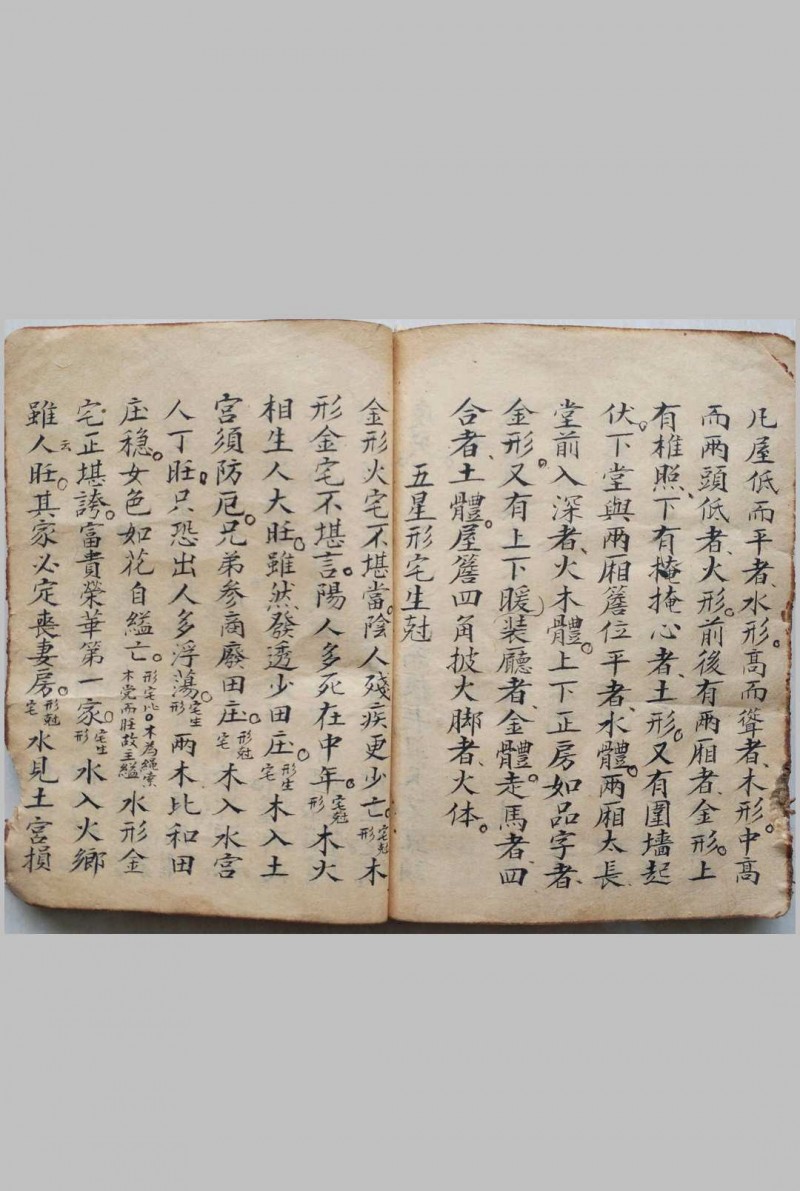 凡屋低而平者、水形。高而聳者、木形。中高
而兩頭低者、火形。前後有兩廂者、金形。上
有椎照、下有掩心者、土形。又有圍墻起
伏。下堂與兩廂簷位平者、水體。兩廂太長
堂前入深者、火木體。上下正房如品字者、
金形。又有上下暖裝廳者、金體。走馬者四
合者、土體。屋簷四角披大脚者、火体。
五星形宅生尅
金形火宅不堪當。陰人殘疾更少亡。宅尅形木
形金宅不堪言。陽人多死在中年。宅尅形木火
相生人大旺。雖然發透少田庄。形生宅木入土
宮須防厄。兄弟参商廢田庄。形尅宅木入水宮
人丁旺。只恐出人多浮蕩。宅生形兩木比和田
庄穩。女色如花自縊亡。形宅比。木為繩索木党而旺故主縊水形金
宅正堪誇。富貴榮華第一家。宅生形水入火鄉
雖云人旺。其家必定喪妻房。形尅宅水見土宮損